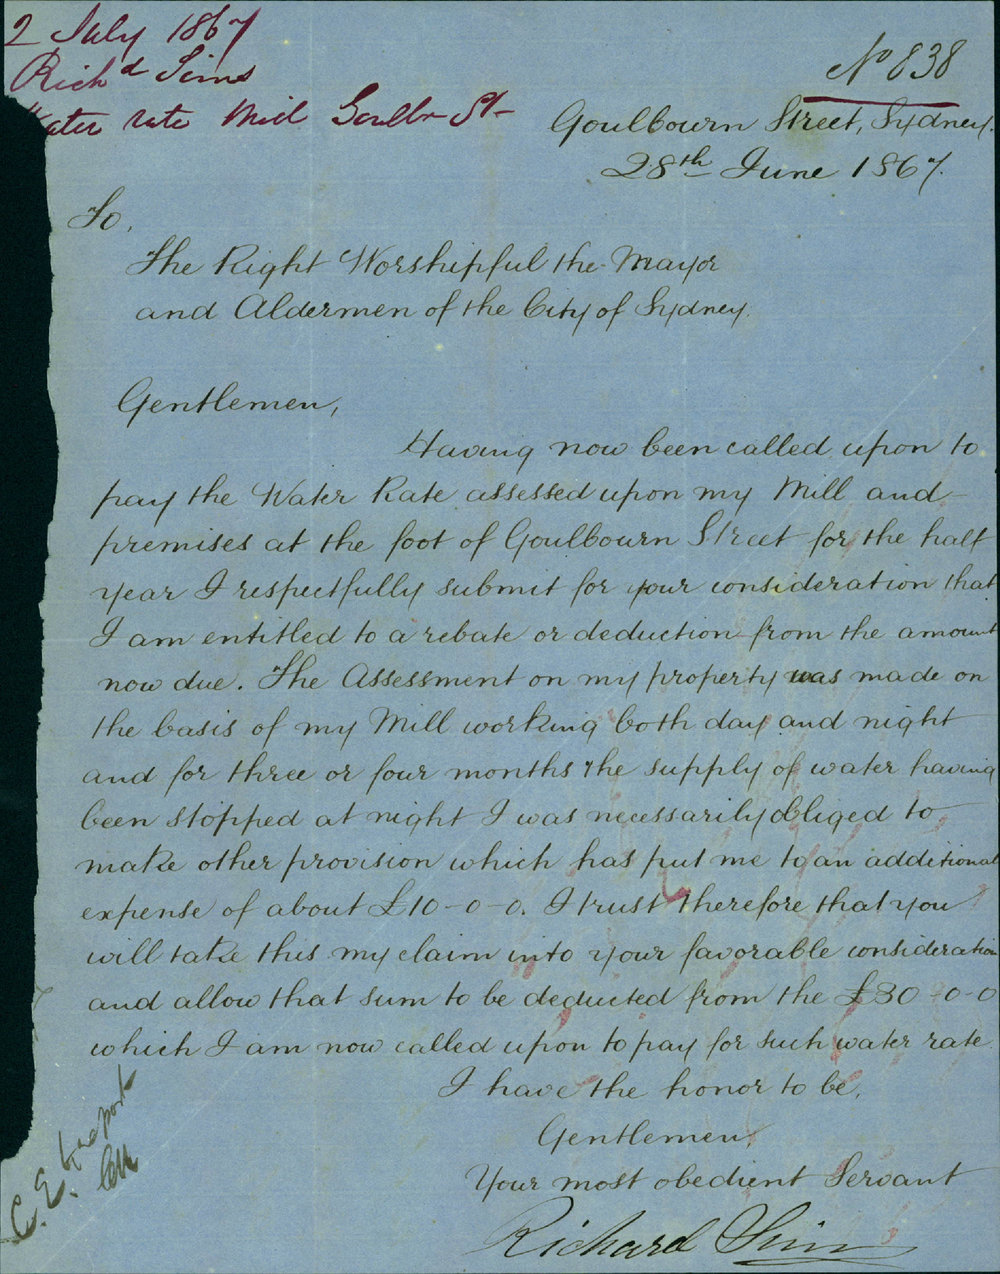 2 July 1867
Richd Sims
Water rate Mill Goulbn St
No 838
Goulbourn Street, Sydney.
28th June 1867.
To,
The Right Worshipful the Mayor
and Aldermen of the City of Sydney.
Gentlemen,
Having now been called upon to
pay the Water Rate assessed upon my Mill and
premises at the foot of Goulbourn Street for the half
year I respectfully submit for your consideration that
I am entitled to a rebate or deduction from the amount
now due. The Assessment on my property was made on
the basis of my Mill working both day and night
and for three or four months the supply of water having
been stopped at night I was necessarily obliged to
make other provision which has put me to an additional
expense of about £10-0-0. I trust therefore that you
will take this my claim into your favorable consideration
and allow that sum to be deducted from the £30-0-0
which I am now called upon to pay for such water rate.
I have the honor to be,
Gentlemen,
Your most obedient Servant
Richard Sims
C. E. to report